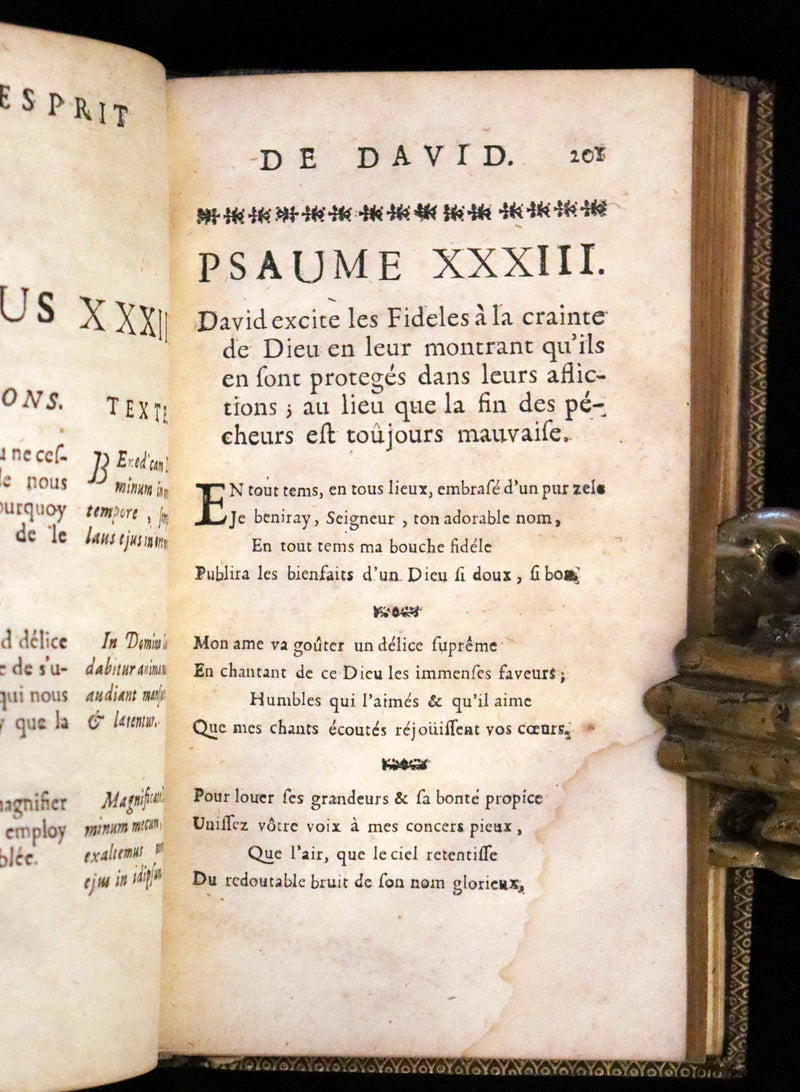 ESPRIT
US XXXII
ONS. TEXTE
ne ces-
nous
ourquoy
de le
minum
tempore ,
laus ejus in
d délice
de s'u-
qui nous
que la
In Domin
dabitur anima
audiant
& lætentur.
magnifier
employ
blée.
Magnificat
minum mecum,
exaltemus
ejus in idipsum
DE DAVID. 201
PSAUME XXXIII.
David excite les Fideles à la crainte
de Dieu en leur montrant qu'ils
en ſont protegés dans leurs aflic-
tions ; au lieu que la fin des pé-
cheurs eſt toûjours mauvaiſe.
EN tout tems, en tous lieux, embraſé d'un pur zele
Je beniray, Seigneur , ton adorable nom,
En tout tems ma bouche fidéle
Publira les bienfaits d'un Dieu ſi doux , ſi bon,
Mon ame va goûter un délice ſuprême
En chantant de ce Dieu les immenſes faveurs ;
Humbles qui l'aimés & qu'il aime
Que mes chants écoutés réjoüiſſent vos cœurs,
Pour louer ſes grandeurs & ſa bonté propice
Uniſſez vôtre voix à mes concers pieux ,
Que l'air, que le ciel retentiſſe
Du redoutable bruit de ſon nom glorieux,